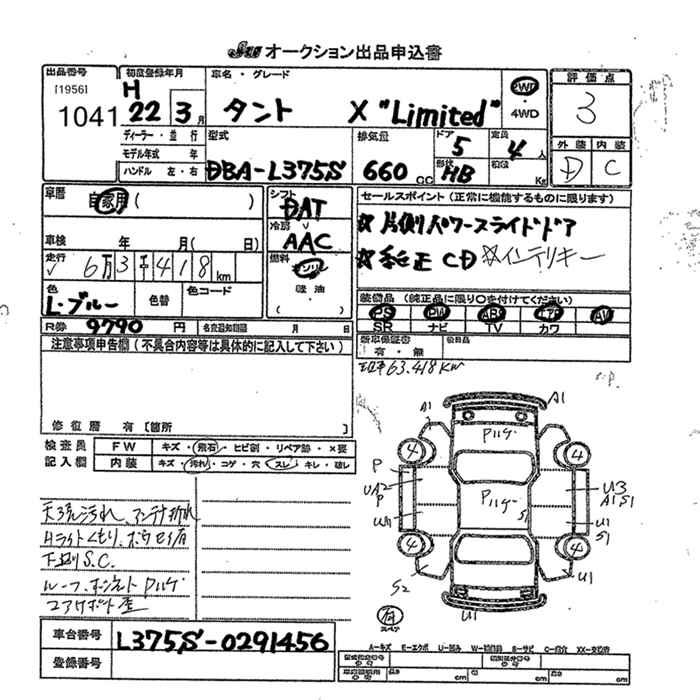 オークション出品申込書
出品番号 [1956] 1041
初度登録年月 H 22 3月
車名・グレード タント X "Limited"
2WD・4WD
評価点 3
外装 D 内装 C
ディーラー・並行
モデル年式 年
ハンドル 左・右
型式 DBA-L375S
排気量 660 cc
ドア 5 形状 HB
定員 4人 積載 Kg
車歴 自家用 ( )
シフト DAT
冷房 AAC
燃料 ガソリン 軽油
車検 年 月( 日)
走行 6万3千418 km
色 L.ブルー 色替 色コード
R券 9790円 名変通知期限 ( 月 日)
セールスポイント(正常に機能するものに限ります)
☆片側パワースライドドア
☆純正CD ☆インテリキー
装備品(純正品に限り○を付けてください)
PS PW ABS エアB AW
SR ナビ TV カワ
新車保証書 有・無 後日品
63.418Km
注意事項申告欄(不具合内容等は具体的に記入して下さい)
修復歴 有〔箇所
検査員記入欄
FW キズ・飛石・ヒビ割・リペア跡・X要
内装 キズ・汚れ・コゲ・穴・スレ・キレ・破レ
天張汚れ、アンテナ折れ
Hライトくもり、
下廻りS.C.
ルーフ、ボンネットPハゲ
A1
A1 Pハゲ
4 4
P
Pハゲ U3
A1 S1
S1 U1
S1
4 4
S2 U1
U1
有 スペア
車台番号 L375S-0291456
登録番号
A-キズ E-エクボ U-凹み W-補修跡 S-サビ C-腐食 XX-交換済
cm cm cm